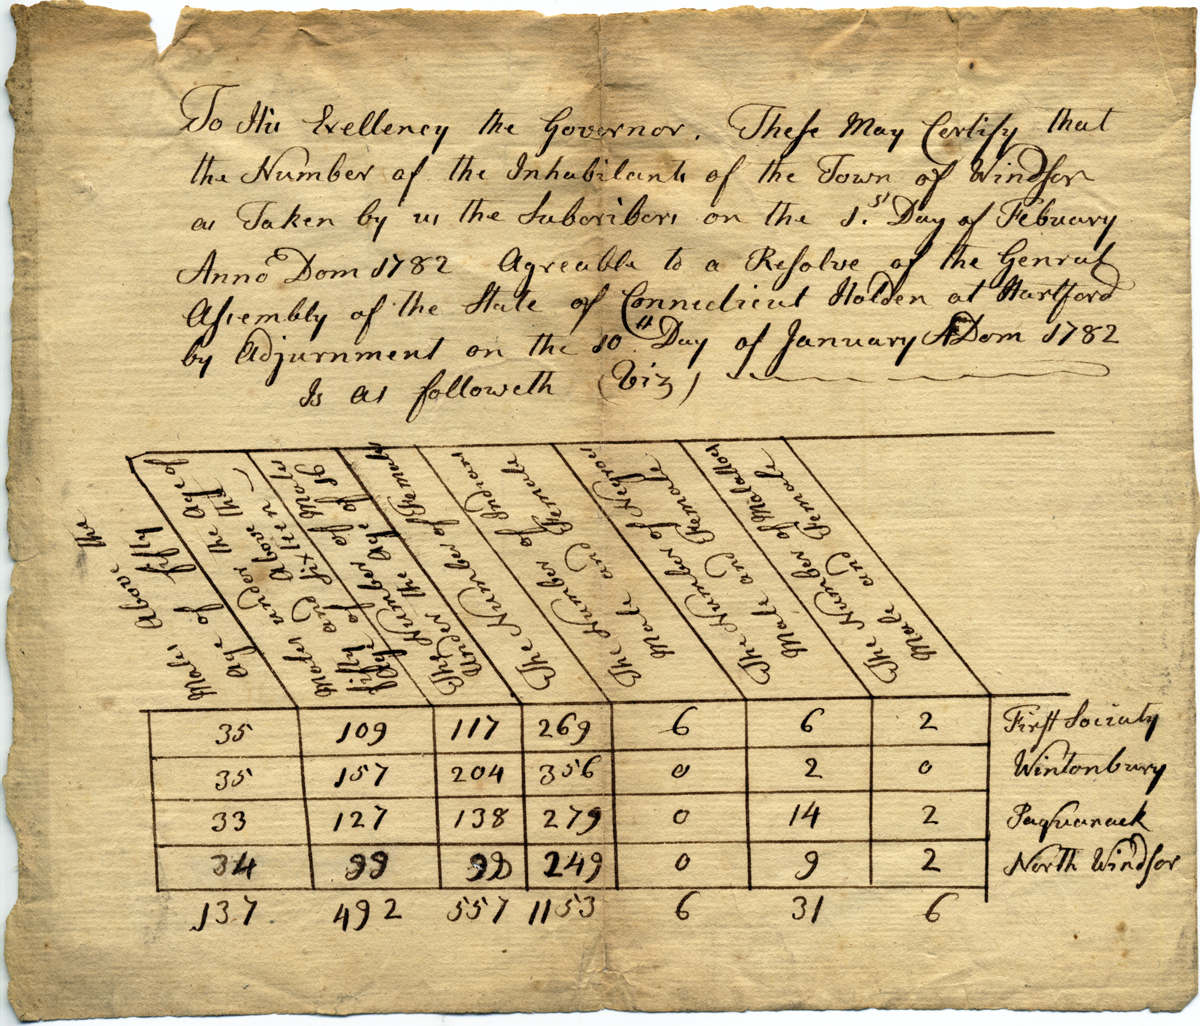 To His Exellency the Governor. These May Certify that
the Number of the Inhabitants of the Town of Windsor
as Taken by us the Subscribers on the 1.st Day of Febuary
Anno Dom 1782 Agreable to a Resolve of the Genral
Assembly of the State of Connecticut Holden at Hartford
by Adjurnment on the 10th Day of January A Dom 1782
Is as followeth (Viz)
Males Above the
Age of fifty
Males under the Age of
fifty and Above the
Age of Sixteen
The Number of Males
under the Age of 16
The Number of Females
The Number of Indians
Male and Female
The Number of Negros
Male and Female
The Number of Malattos
Male and Female
35 109 117 269 6 6 2 First Sociaty
35 157 204 356 0 2 0 Wintonbury
33 127 138 279 0 14 2 Paquanack
34 99 98 249 0 9 2 North Windsor
137 492 557 1153 6 31 6